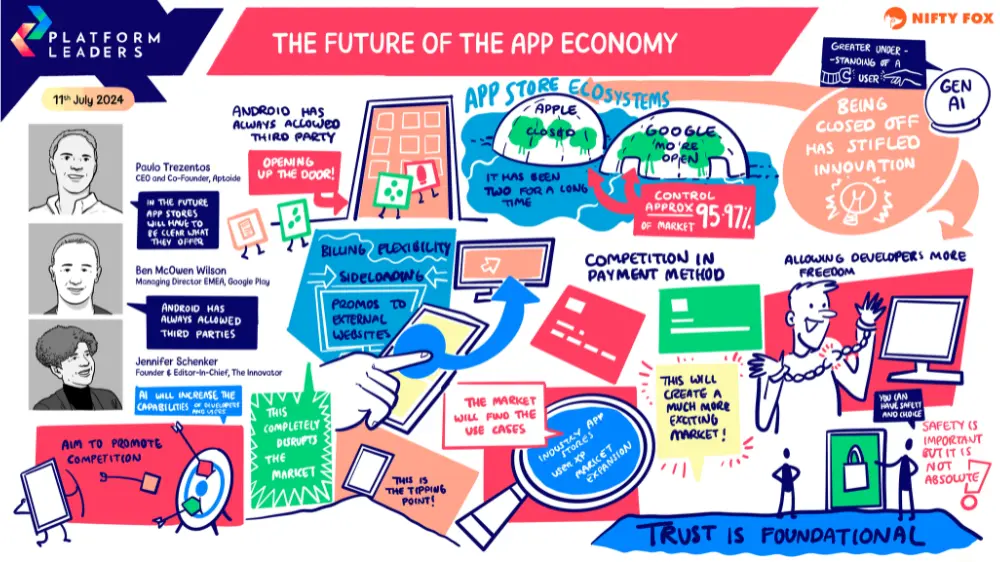 PLATFORM
LEADERS
THE FUTURE OF THE APP ECONOMY
NIFTY FOX
11th July 2024
Paulo Trezentos
CEO and Co-Founder, Aptoide
IN THE FUTURE
APP STORES
WILL HAVE TO
BE CLEAR WHAT
THEY OFFER
Ben McOwen Wilson
Managing Director EMEA, Google Play
ANDROID HAS
ALWAYS ALLOWED
THIRD PARTIES
Jennifer Schenker
Founder & Editor-In-Chief, The Innovator
AI WILL INCREASE THE
CAPABILITIES OF DEVELOPERS
AND USERS
ANDROID HAS
ALWAYS ALLOWED
THIRD PARTY
OPENING
UP THE DOOR!
APP STORE ECOSYSTEMS
APPLE
CLOSED
GOOGLE
'MORE
OPEN'
IT HAS BEEN
TWO FOR A LONG
TIME
CONTROL
APPROX 95-97%
OF MARKET
GREATER UNDER-
-STANDING OF A
USER
GEN
AI
BEING
CLOSED OFF
HAS STIFLED
INNOVATION
BILLING FLEXIBILITY
SIDELOADING
PROMOS TO
EXTERNAL
WEBSITES
COMPETITION IN
PAYMENT METHOD
ALLOWING DEVELOPERS MORE
FREEDOM
THIS WILL
CREATE A
MUCH MORE
EXCITING
MARKET!
AIM TO PROMOTE
COMPETITION
THIS
COMPLETELY
DISRUPTS
THE
MARKET
THIS IS
THE TIPPING
POINT!
THE MARKET
WILL FIND THE
USE CASES
INDUSTRY APP
STORES
USER XP
MARKET
EXPANSION
YOU CAN
HAVE SAFETY
AND CHOICE
SAFETY IS
IMPORTANT
BUT IT IS
NOT
ABSOLUTE!
TRUST IS FOUNDATIONAL